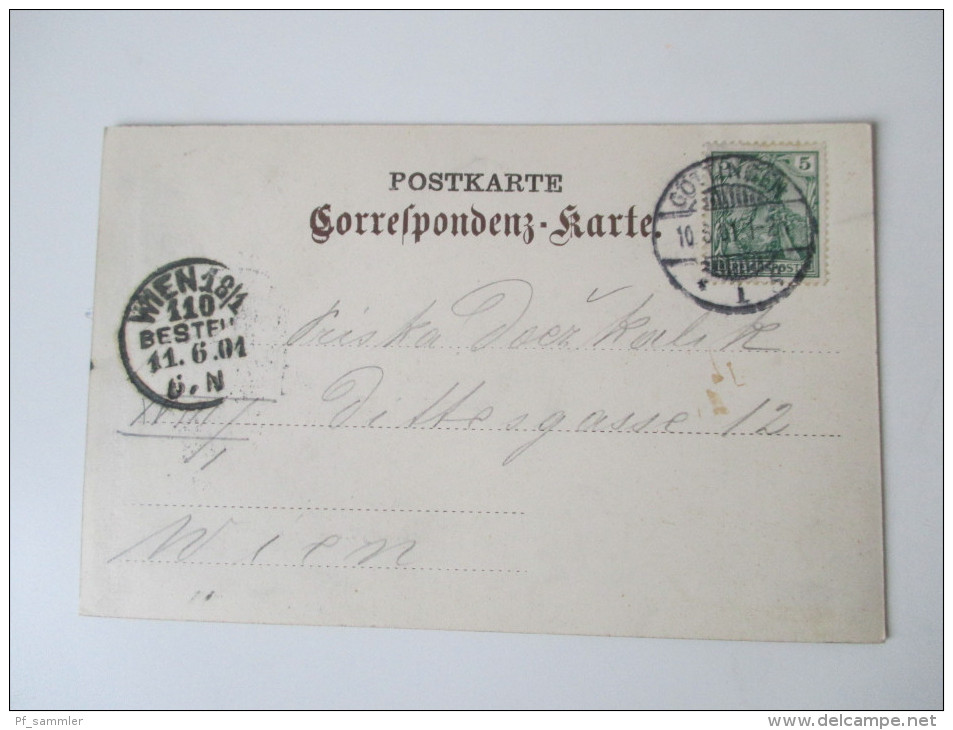 POSTKARTE
Correſpondenz-Karte.
GÖTTINGEN
10. 6. 01. 1-2N
* 1
5
REICHSPOST
WIEN 18/1
110
BESTELL
11. 6. 01
6. N
Friska Doczkalik
XVIII/1 Dittesgasse 12
Wien
Pf_sammler
http://www.delcampe.net